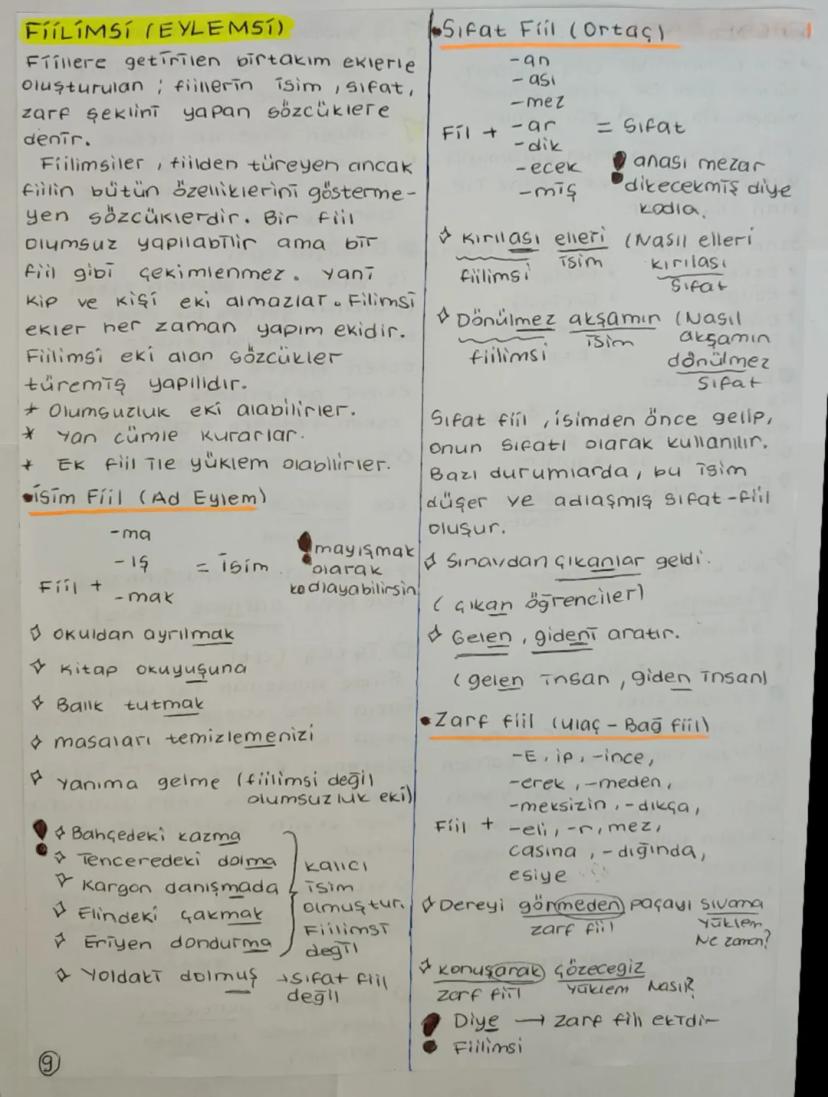 FİİLİMSİ (EYLEMSİ)
Fiillere getirilen birtakım eklerle
oluşturulan ; fiillerin isim , sıfat,
zarf şeklini yapan sözcüklere
denir.
Fiilimsiler , fiilden türeyen ancak
fiilin bütün özelliklerini gösterme-
yen sözcüklerdir. Bir fiil
olumsuz yapılabilir ama bir
fiil gibi çekimlenmez. yani
kip ve kişi eki almazlar. Filimsi
ekler her zaman yapım ekidir.
Fiilimsi eki alan sözcükler
türemiş yapılıdır.
* Olumsuzluk eki alabilirler.
* Yan cümle kurarlar.
* Ek fiil ile yüklem olabilirler.
•İsim Fiil (Ad Eylem)
-ma
-iş
Fiil + -mak = isim
! mayışmak
olarak
kodlayabilirsin
okuldan ayrılmak
kitap okuyuşuna
Balık tutmak
masaları temizlemenizi
yanıma gelme (fiilimsi değil
olumsuzluk eki)
! Bahçedeki kazma
Tenceredeki dolma
Kargon danışmada
Elindeki çakmak
Eriyen dondurma
kalıcı
isim
olmuştur.
Fiilimsi
değil
Yoldaki dolmuş →sıfat fiil
değil
9
•Sıfat Fiil (Ortaç)
-an
-ası
-mez
Fiil + -ar = Sıfat
-dik
-ecek
-miş
! anası mezar
dikecekmiş diye
kodla.
Kırılası elleri (Nasıl elleri
fiilimsi isim kırılası
Sıfat
Dönülmez akşamın (Nasıl
fiilimsi isim akşamın
dönülmez
Sıfat
Sıfat fiil , isimden önce gelip,
onun sıfatı olarak kullanılır.
Bazı durumlarda, bu isim
düşer ve adlaşmış sıfat-fiil
oluşur.
Sınavdan çıkanlar geldi.
( çıkan öğrenciler)
Gelen , gideni aratır.
(gelen insan , giden insan)
•Zarf fiil (Ulaç - Bağ fiil)
-E, ip, -ince,
-erek, -meden,
-meksizin, -dıkça,
Fiil + -eli, -r, mez,
casına, -dığında,
esiye
Dereyi görmeden paçayı sıvama
zarf fiil yüklem
Ne zaman?
konuşarak çözecegiz
zarf fiil yüklem Nasıl?
! Diye → zarf fiil ekidir
Fiilimsi